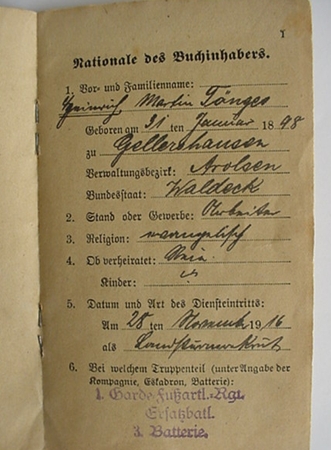 1
Nationale des Buchinhabers.
1. Vor- und Familienname:
Heinrich Martin Tönges
Geboren am 31 ten Januar 1898
zu Gellershausen
Verwaltungsbezirk: Arolsen
Bundesstaat: Waldeck
2. Stand oder Gewerbe: Arbeiter
3. Religion: evangelisch
4. Ob verheiratet: Nein.
Kinder:
5. Datum und Art des Diensteintritts:
Am 28 ten Novemb 1916
als Landsturmrekrut
6. Bei welchem Truppenteil (unter Angabe der
Kompagnie, Eskadron, Batterie):
1. Garde-Fußartl.-Rgt.
Ersatzbatl.
3. Batterie.